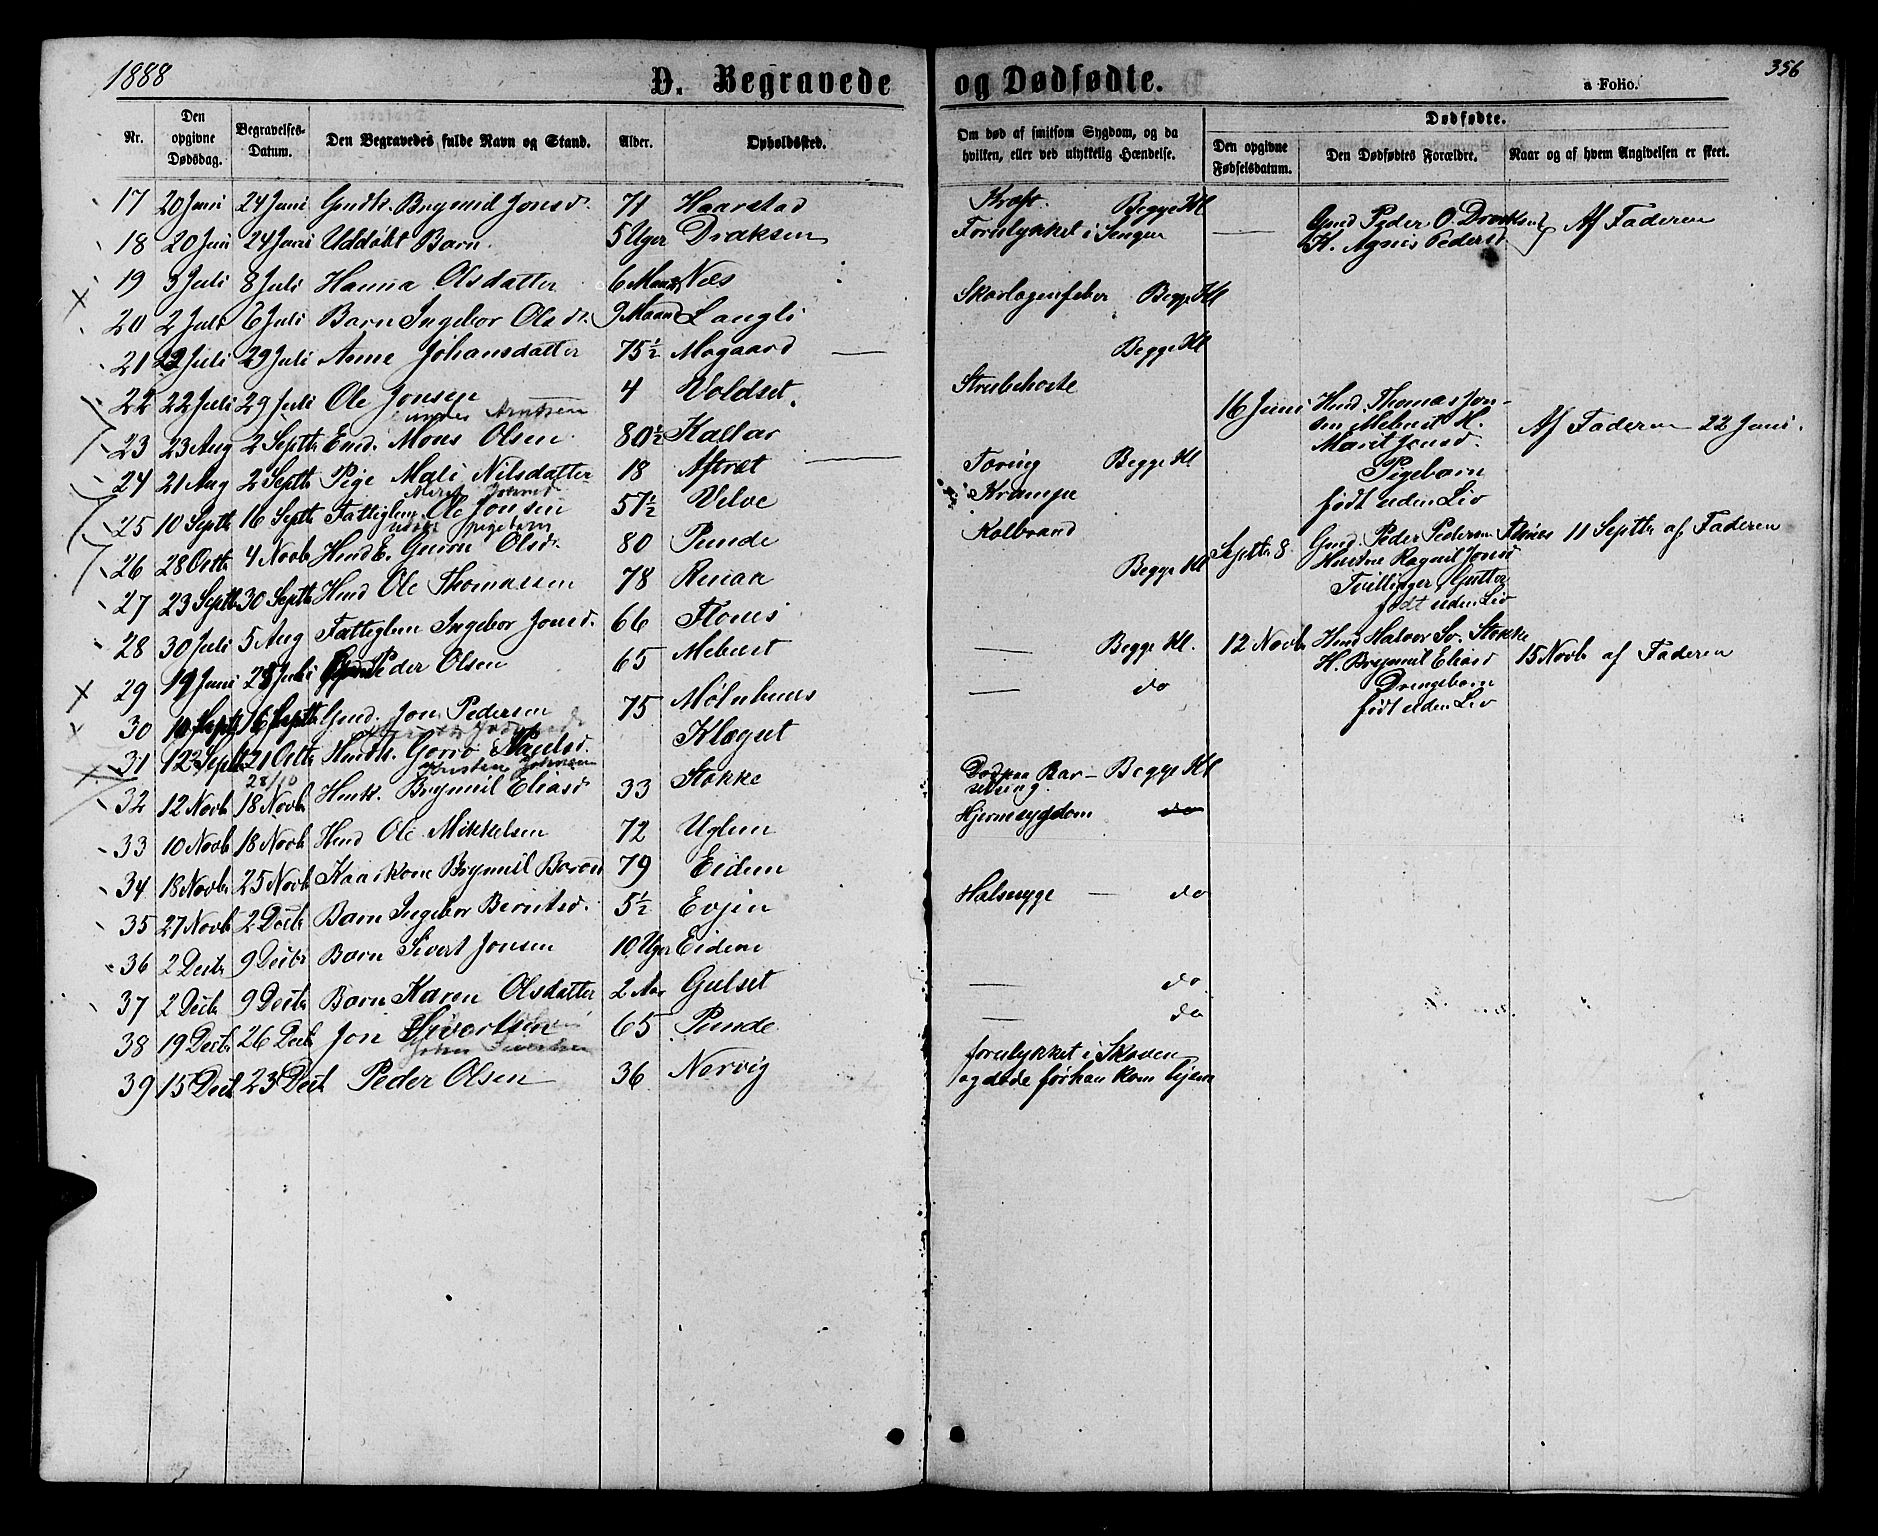 1888
D. Begravede og Dødfødte.
a Folio. 356
Nr. Den opgivne Dødsdag. Begravelses-Datum. Den Begravedes fulde Navn og Stand. Alder. Opholdssted.
Om død af smitsom Sygdom, og da hvilken, eller ved ulykkelig Hændelse.
Dødfødte.
Den opgivne Fødselsdatum. Den Dødfødtes Forældre. Naar og af hvem Angivelsen er skeet.
17 20 Juni 24 Juni Gmdk. Brynnild Jonsd. 71 Haarstad Kræft. Begge Kl
18 20 Juni 24 Juni Uddøbt Barn 5 Uger Draksen Forulykket i Sengen
Gmd Peder O. Draksen
K. Agnis Pedersd Af Faderen
19 3 Juli 8 Juli Hanna Olsdatter 6 Maand Næs
20 2 Juli 8 Juli Barn Ingebor Olsd. 9 Maand Langli Skarlagensfeber Begge Kl
21 22 Juli 29 Juli Anne Johansdatter 75½ Mogaard — Begge Kl
22 22 Juli 29 Juli Ole Jonsen 4 Voldset. Strubehoste
Arntsen
23 23 Aug 2 Septb Mons Olsen 80½ Kaltar
16 Juni Husd. Thomas Jon-
sen Mebust H.
Marit Jonsd.
Pigebarn
født uden Liv
Af Faderen 22 Juni.
24 21 Aug 2 Septb Pige Mali Nilsdatter 18 Aftræt — Tæring Begge Kl
25 10 Septb 16 Septb Fattiglem Ole Jonsen 57½ Velve Krampe
pigebarn
26 28 Octb 4 Novb Husd E. Guron Olsd. 80 Punde Kolbrand
27 23 Septb 30 Septb Husd Ole Thomassen 78 Renaa Begge Kl
Septb 8 Gmd. Peder Pedersen Flønes 11 Septb af Faderen
Hustru Ragnil Jonsd
Tvillinger Gutter
født uden Liv
28 30 Juli 5 Aug Fattiglem Ingebor Jonsd. 66 Flønes
29 19 Juni 28 Juli Peder Olsen 65 Mebust — Begge Kl.
12 Novb Husd Halvor Sv. Stokke
H. Brynnil Eliasd 15 Novb af Faderen
Drengebarn
født uden Liv
30 10 Septb 16 Septb Gmd. Jon Pedersen 75 Mølnhuus — do
31 12 Septb 21 Octb Husdk. Gorro Klæget
28/10 Kristine
32 12 Novb 18 Novb Husk. Brynnil Eliasd 33 Stokke Død paa Bar- Begge Kl
selseng
33 10 Novb 18 Novb Husd Ole Mikkelsen 72 Uglem Hjernesygdom do
34 18 Novb 25 Novb Kaarkone Brynnil 79 Eidem
35 27 Novb 2 Decb Barn Ingebor Berntsd. 5½ Evjen Halssyge — do
36 2 Decbr 9 Decbr Barn Sivert Jonsen 10 Uger Eidem
37 2 Decb 9 Decb Barn Karen Olsdatter 2 Aar Gulset — do
38 19 Decb 26 Decb Jon Sivertsen 65 Punde — do
John Sivertsen
39 15 Decb 23 Decb Peder Olsen 36 Nervig forulykket i Skoven
og døde før han kom hjem